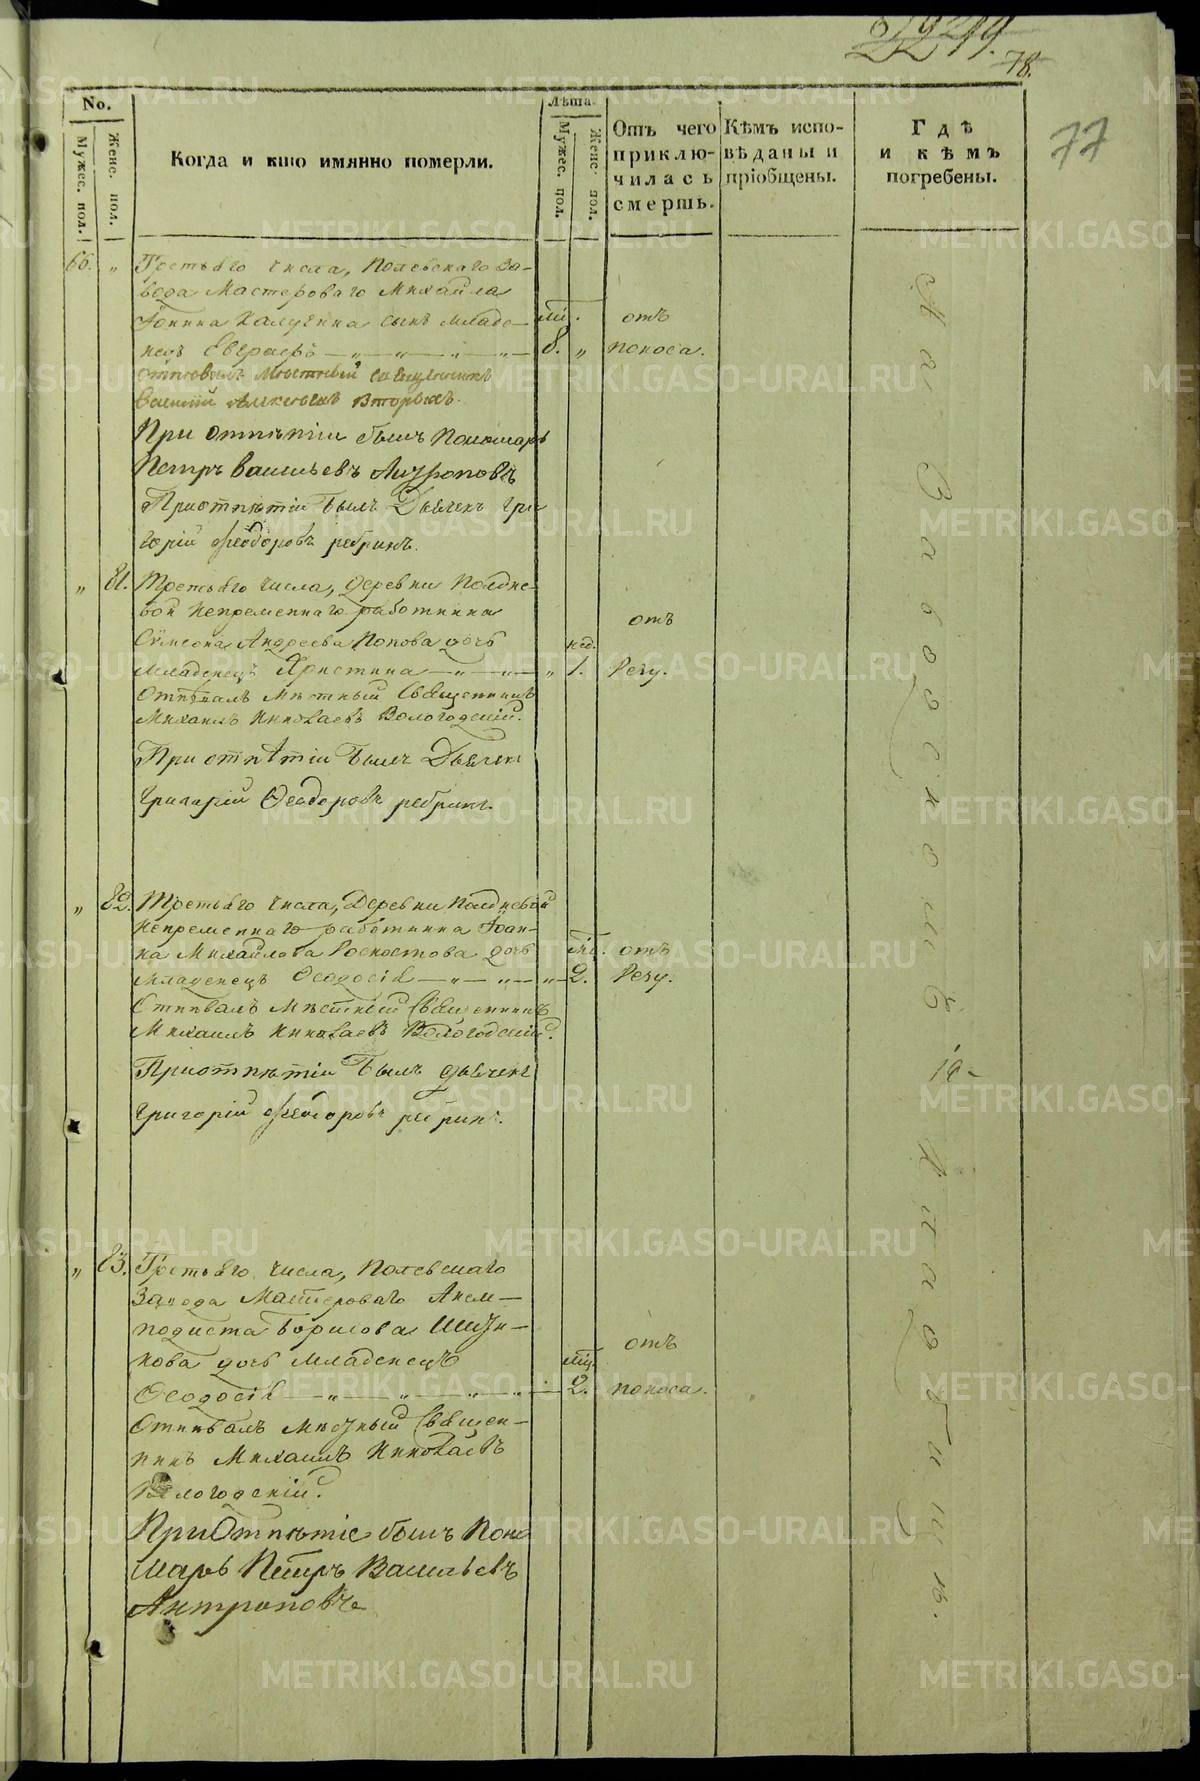 78.
77
No.
Мужес. пол.
Женс. пол.
Когда и кто имянно померли.
Лѣта
Мужес. пол.
Женс. пол.
Отъ чего
приклю-
чилась
смерть.
Кѣмъ испо-
вѣданы и
пріобщены.
Гдѣ
и кѣмъ
погребены.
„
Третьяго числа, Полевскаго За-
вода Мастероваго Михайла
сынъ младе-
нецъ Евграфъ — „ — „ — „ — „ —
мѣ.
8. „
отъ
поноса.
отпѣвалъ Мѣстный священникъ
Василій Вторыхъ.
При отпѣтіи былъ Пономарь
Петръ Васильевъ Антроповъ
При отпѣтіи былъ Дьячекъ Гри
горій Феодоровъ Ребринъ.
„ 81.
Третьяго числа, Деревни Полдне-
вой Непременнаго работника
Сѵмеона Андреева Попова дочь
младенецъ Христина — „ — „ — „
нед.
1.
отъ
Резу.
Отпѣвалъ Мѣстный Священникъ
Михаилъ Николаевъ Вологодскій.
При отпѣтіи былъ Дьячекъ
Григорій Феодоровъ Ребринъ.
„ 82.
Третьяго числа, Деревни Полдневой
Непременнаго работника Іоан-
на Михайлова дочь
младенецъ Ѳеодосія — „ — „ — „ — „
2.
отъ
Резу.
Отпѣвалъ Мѣстный Священникъ
Михаилъ Николаевъ Вологодскій.
При отпѣтіи былъ дьячекъ
Григорій Феодоровъ Ребринъ.
„ 83.
Третьяго числа, Полевскаго
Завода Мастероваго Анем-
подиста Борисова
дочь младенецъ
Ѳеодосія — „ — „ — „ — „ —
мѣ.
2.
отъ
поноса.
Отпѣвалъ Мѣстный Священ-
никъ Михаилъ Николаевъ
Вологодскій.
При Отпѣтіе былъ Поно
марь Петръ Васильевъ
Антроповъ
На Заводскомъ Кладбищѣ.
METRIKI.GASO-URAL.RU